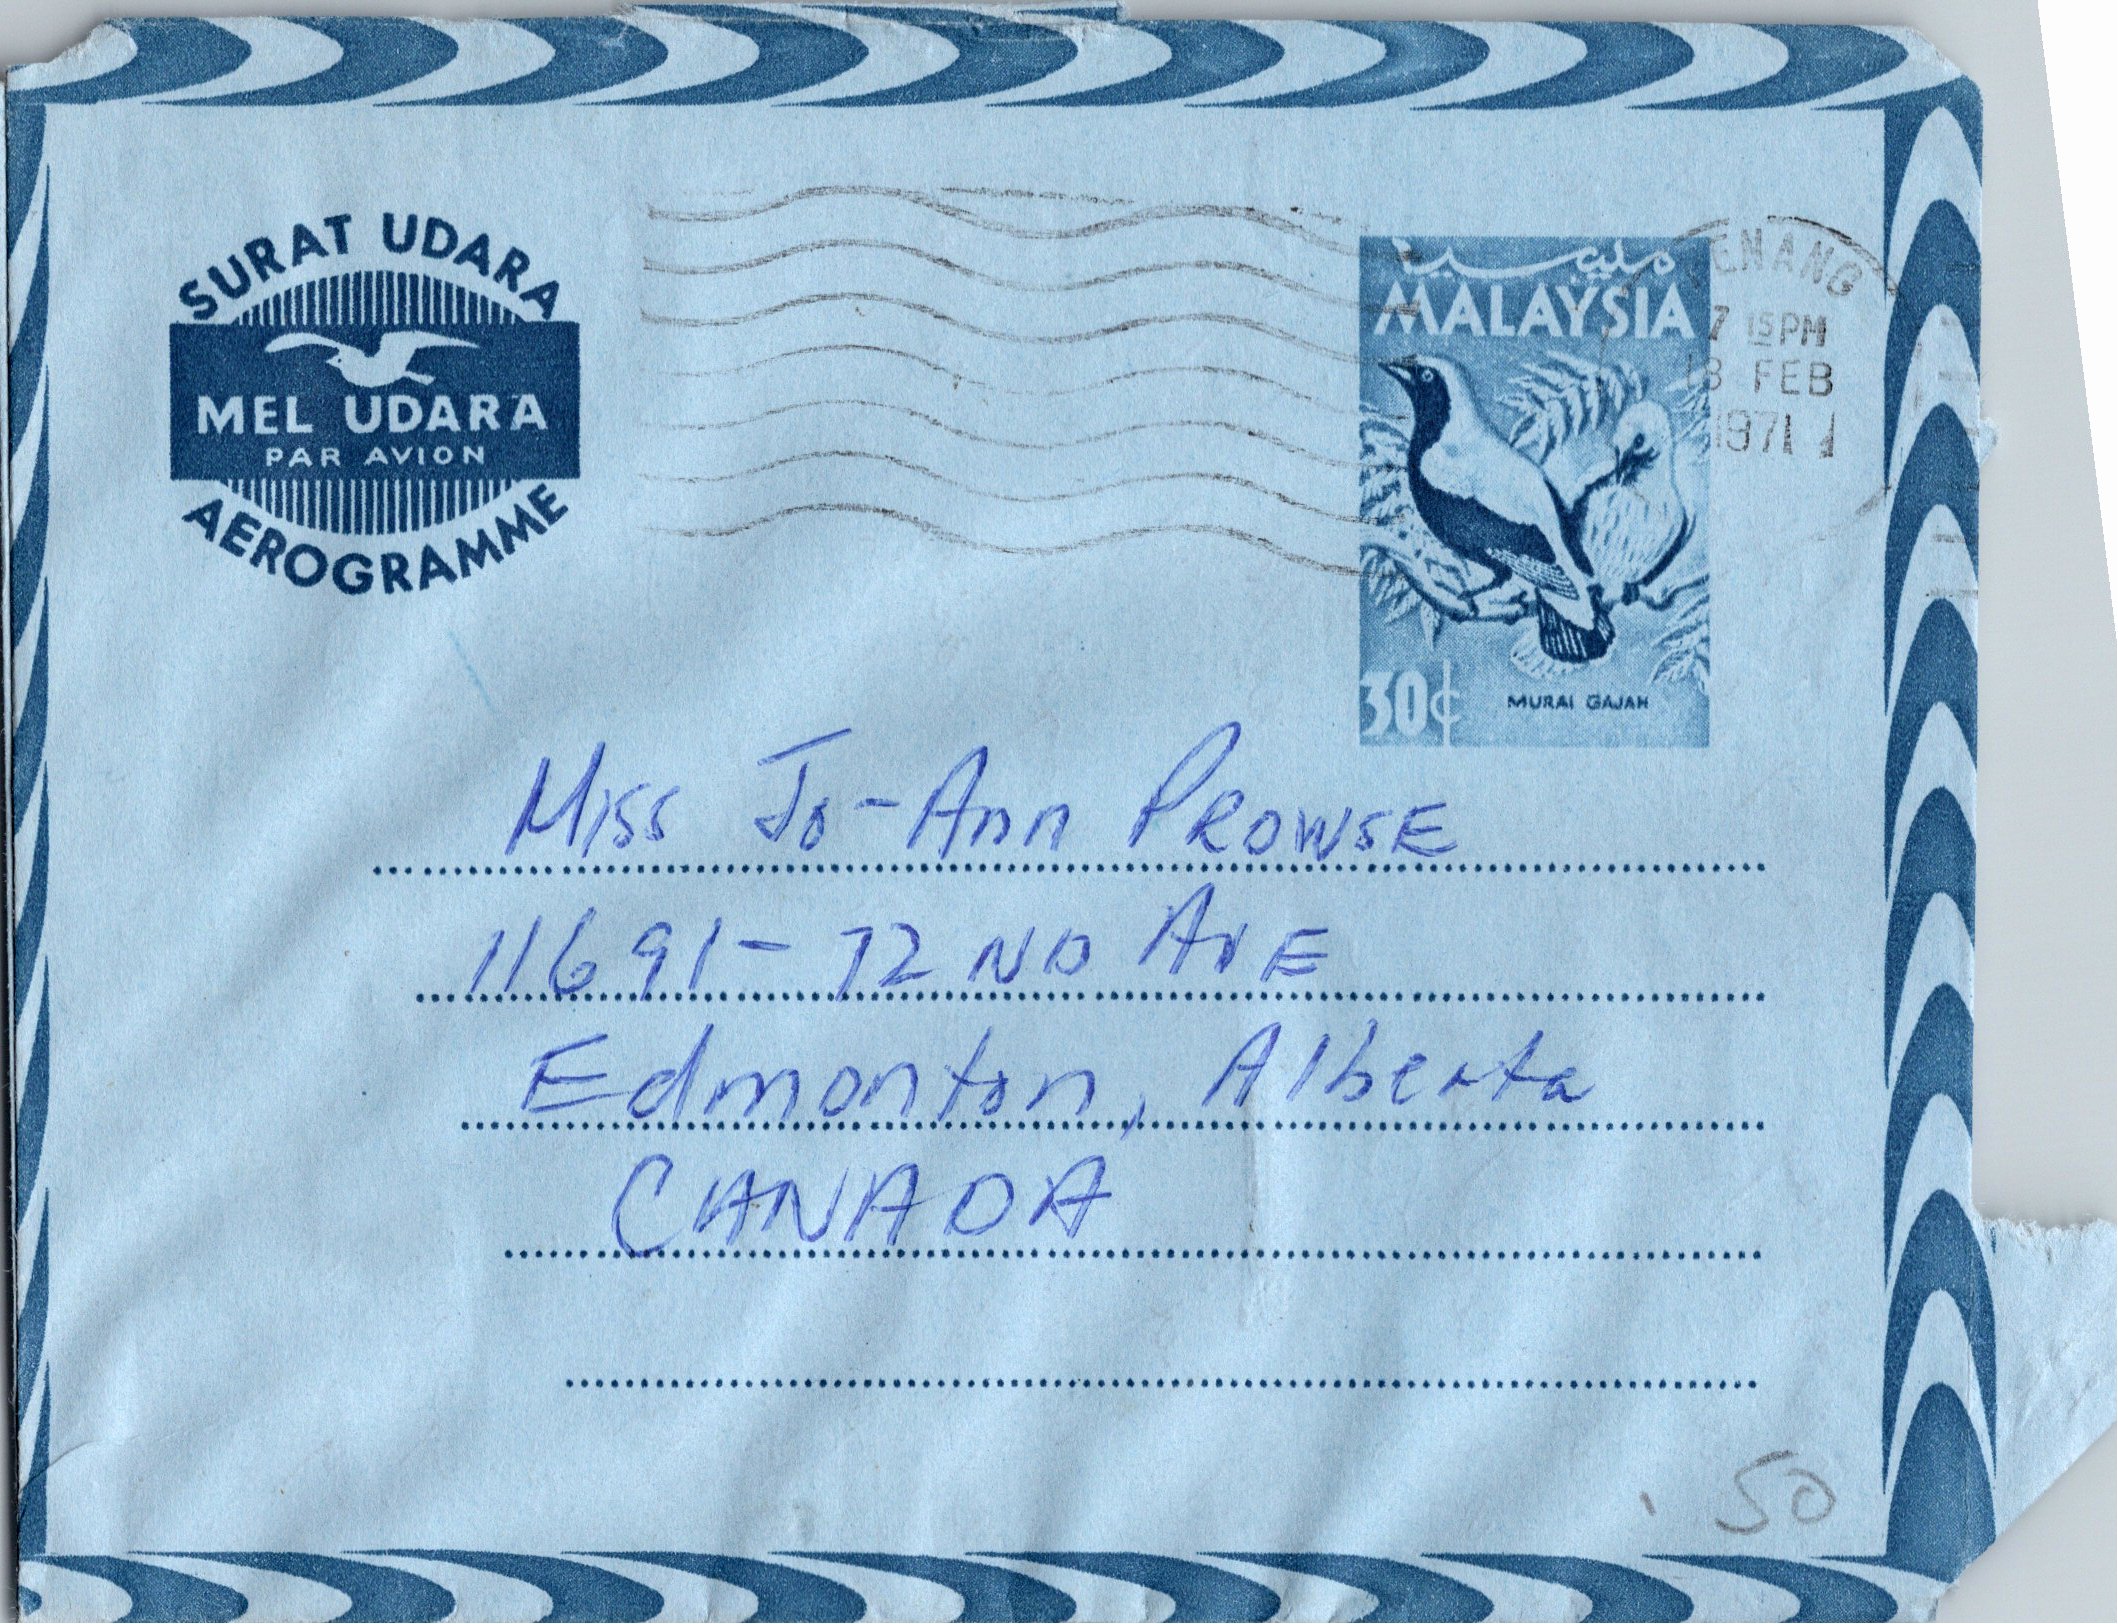 SURAT UDARA
MEL UDARA
PAR AVION
AEROGRAMME
مليسيا
MALAYSIA
30¢
MURAI GAJAH
PENANG
7 15 PM
18 FEB
1971
Miss Jo-Ann PROWSE
11691-72ND AVE
Edmonton, Alberta
CANADA
50